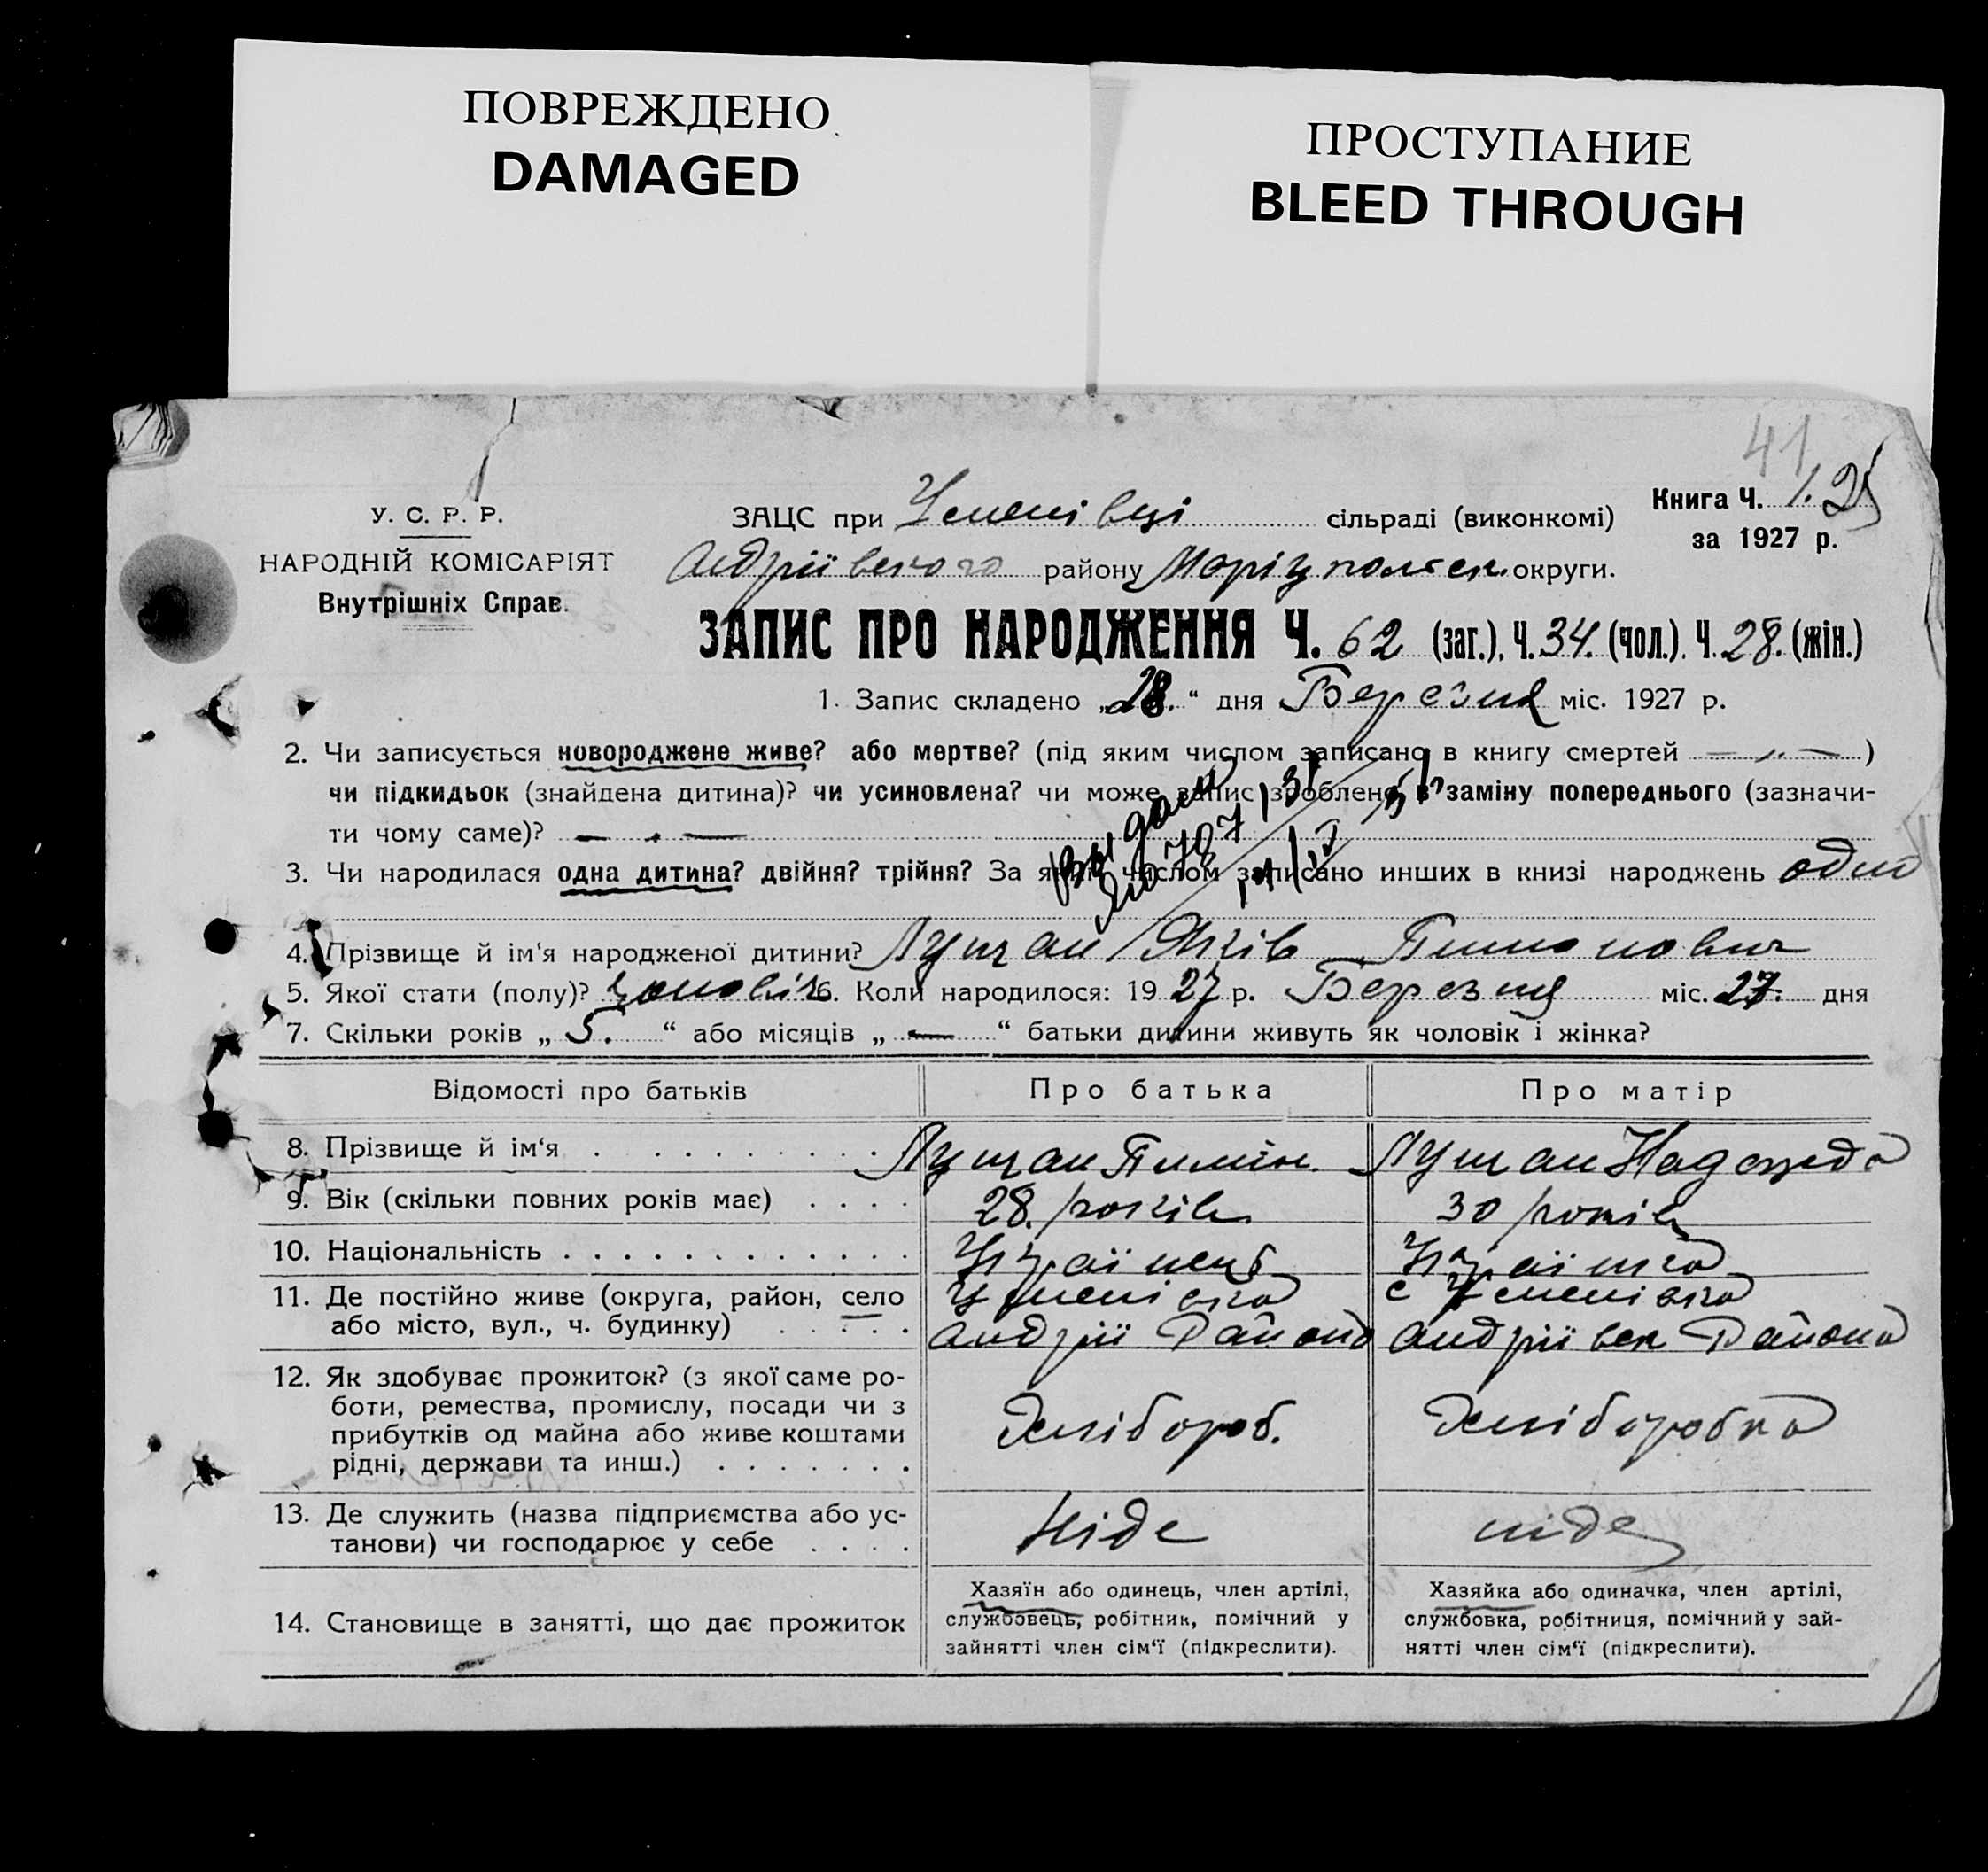 ПОВРЕЖДЕНО
DAMAGED
ПРОСТУПАНИЕ
BLEED THROUGH
41
У. С. Р. Р.
НАРОДНІЙ КОМІСАРІЯТ
Внутрішніх Справ.
ЗАЦС при сільраді (виконкомі)
Андріївского району Маріупольск. округи.
Книга Ч. 1.
за 1927 р.
ЗАПИС ПРО НАРОДЖЕННЯ Ч. 62 (заг.), Ч. 34. (чол.). Ч. 28. (жін.)
1. Запис складено „28.“ дня Березня міс. 1927 р.
2. Чи записується новороджене живе? або мертве? (під яким числом записано в книгу смертей — „ — )
чи підкидьок (знайдена дитина)? чи усиновлена? чи може запис зроблено в заміну попереднього (зазначи-
ти чому саме)? — . —
3. Чи народилася одна дитина? двійня? трійня? За яким числом записано инших в книзі народжень одно
4. Прізвище й ім'я народженої дитини? Лутан Яків Пимонович
5. Якої стати (полу)? чоловіч 6. Коли народилося: 1927 р. Березня міс. 27. дня
7. Скільки років „ 5. “ або місяців „ — “ батьки дитини живуть як чоловік і жінка?
Відомості про батьків Про батька Про матір
8. Прізвище й ім'я Лутан Пимін. Лутан Надежда
9. Вік (скільки повних років має) 28. років 30 років
10. Національність Українець Українка
11. Де постійно живе (округа, район, село с
або місто, вул., ч. будинку) Андрії Района Андріївск Района
12. Як здобуває прожиток? (з якої саме ро-
боти, ремества, промислу, посади чи з
прибутків од майна або живе коштами
рідні, держави та инш.) Хлібороб. Хліборобка
13. Де служить (назва підприємства або ус-
танови) чи господарює у себе Ніде ніде
14. Становище в занятті, що дає прожиток
Хазяїн або одинець, член артілі,
службовець, робітник, помічний у
зайнятті член сім'ї (підкреслити).
Хазяйка або одиначка, член артілі,
службовка, робітниця, помічний у зай-
нятті член сім'ї (підкреслити).